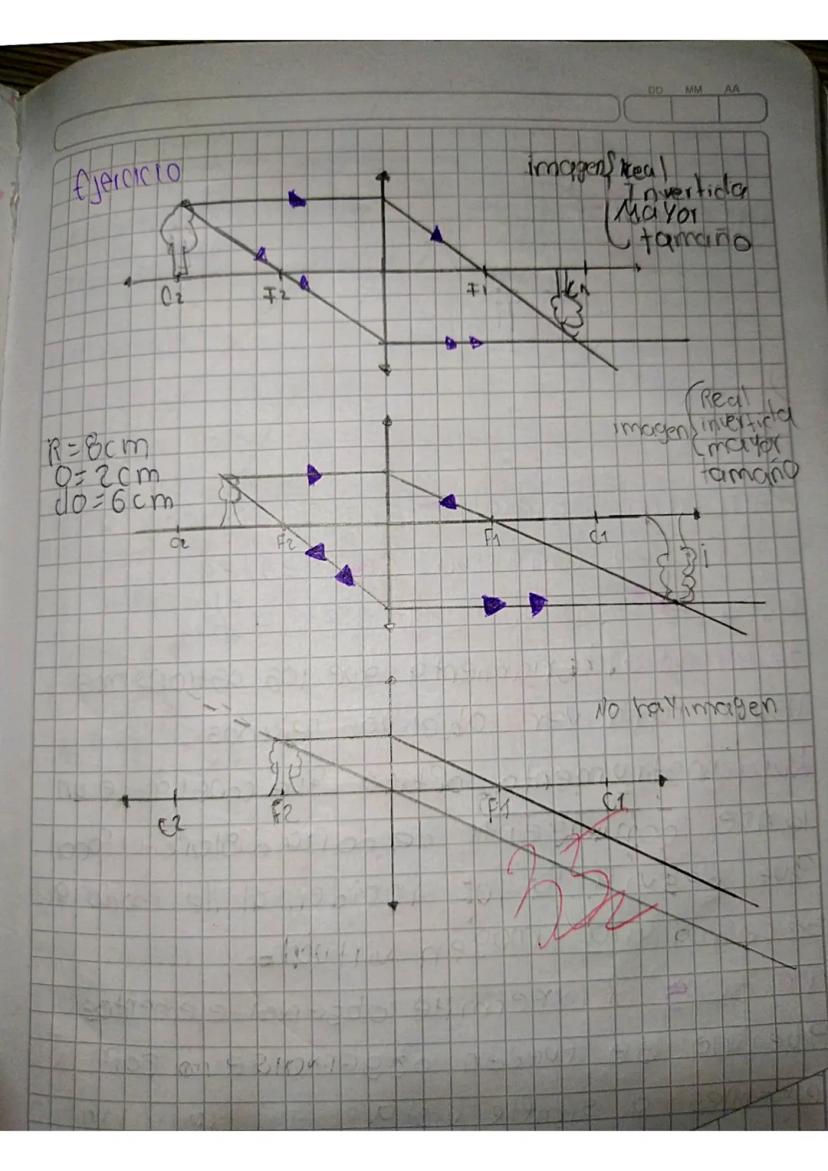 DD MM AA
Ejercicio
imagen Real
Invertida
Mayor
tamaño
C2 F2 F1 C1
R=8cm
O=2cm
do=6cm
imagen Real
invertida
mayor
tamaño
C2 F2 F1 C1
i
No hay imagen
C2 F2 F1 C1